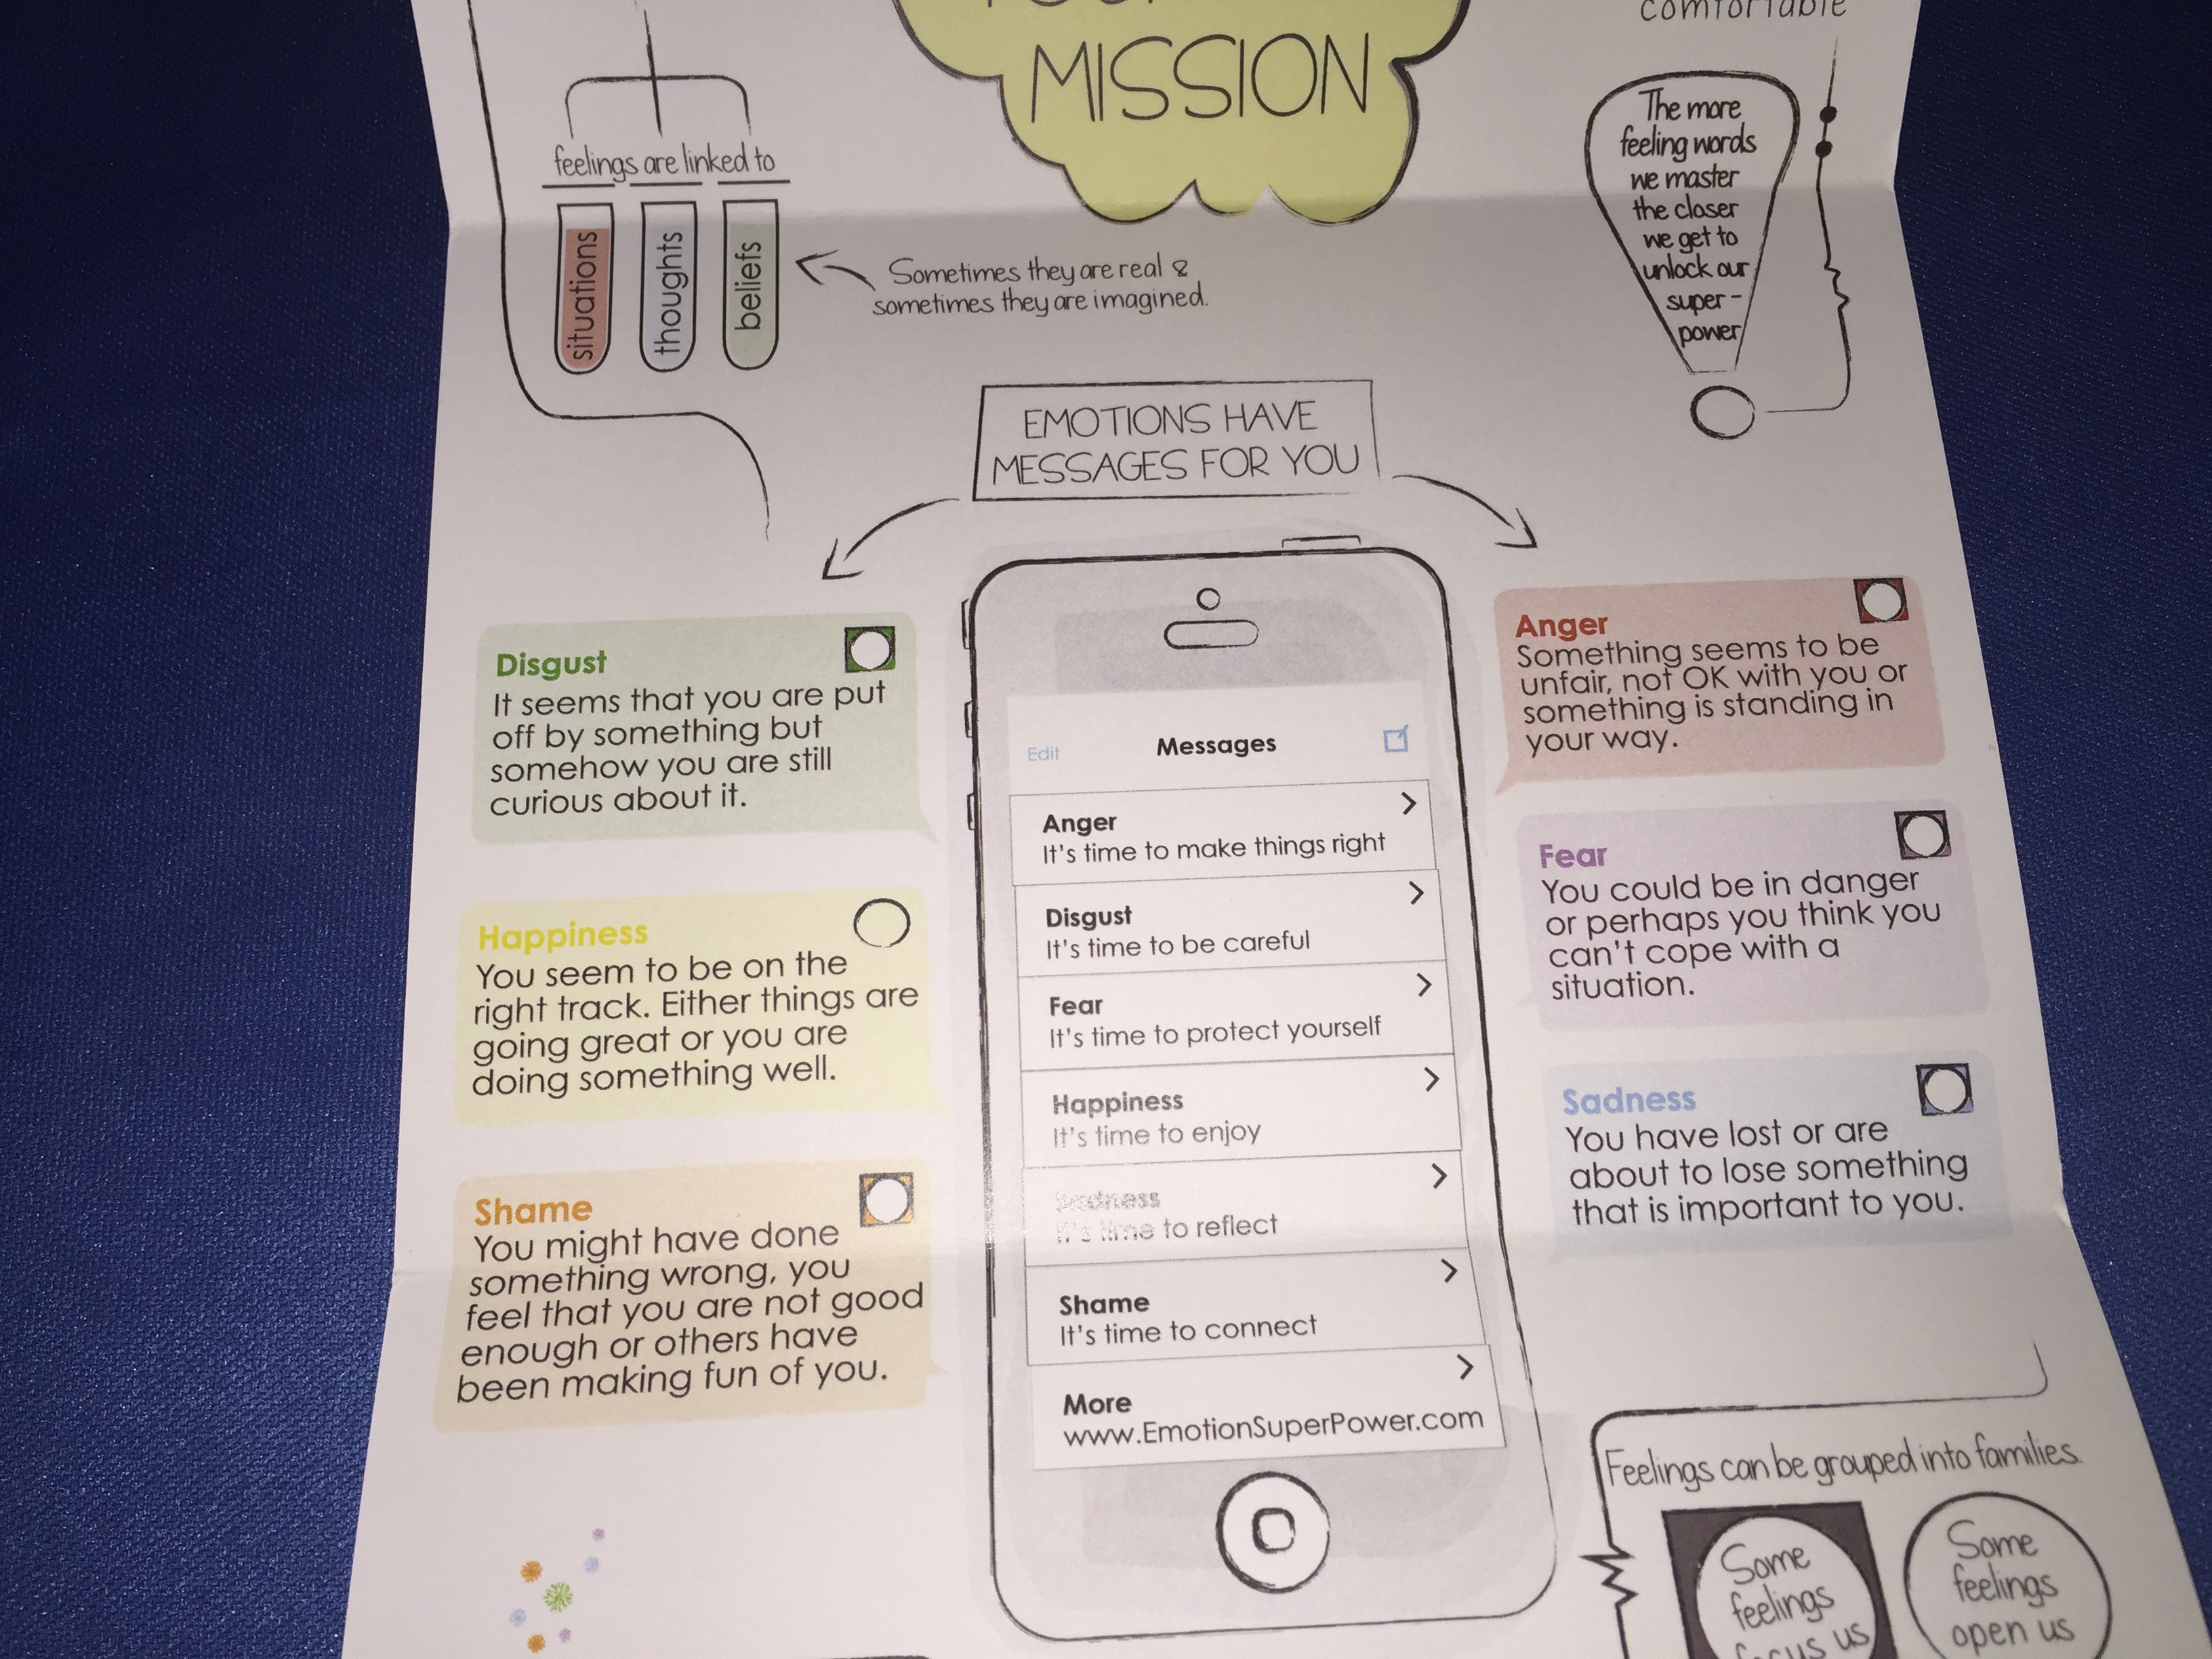 MISSION
comfortable
feelings are linked to
situations
thoughts
beliefs
Sometimes they are real &
sometimes they are imagined.
The more
feeling words
we master
the closer
we get to
unlock our
super-
power
EMOTIONS HAVE
MESSAGES FOR YOU
Disgust
It seems that you are put
off by something but
somehow you are still
curious about it.
Happiness
You seem to be on the
right track. Either things are
going great or you are
doing something well.
Shame
You might have done
something wrong, you
feel that you are not good
enough or others have
been making fun of you.
Edit
Messages
Anger
It's time to make things right
Disgust
It's time to be careful
Fear
It's time to protect yourself
Happiness
It's time to enjoy
Sadness
It's time to reflect
Shame
It's time to connect
More
www.EmotionSuperPower.com
Anger
Something seems to be
unfair, not OK with you or
something is standing in
your way.
Fear
You could be in danger
or perhaps you think you
can't cope with a
situation.
Sadness
You have lost or are
about to lose something
that is important to you.
Feelings can be grouped into families.
Some
feelings
focus us
Some
feelings
open us